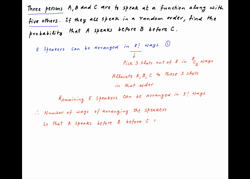 Three persons A, B and C are to speak at a function along with
five others. If they all speak in a random order, find the
probability that A speaks before B before C.
8 Speakers can be arranged in 8! ways ①
Pick 3 slots out of 8 in 8C3 ways
Allocate A, B, C to these 3 slots
in that order
Remaining 5 speakers can be arranged in 5! ways
∴ Number of ways of arranging the speakers
so that A speaks before B before C =